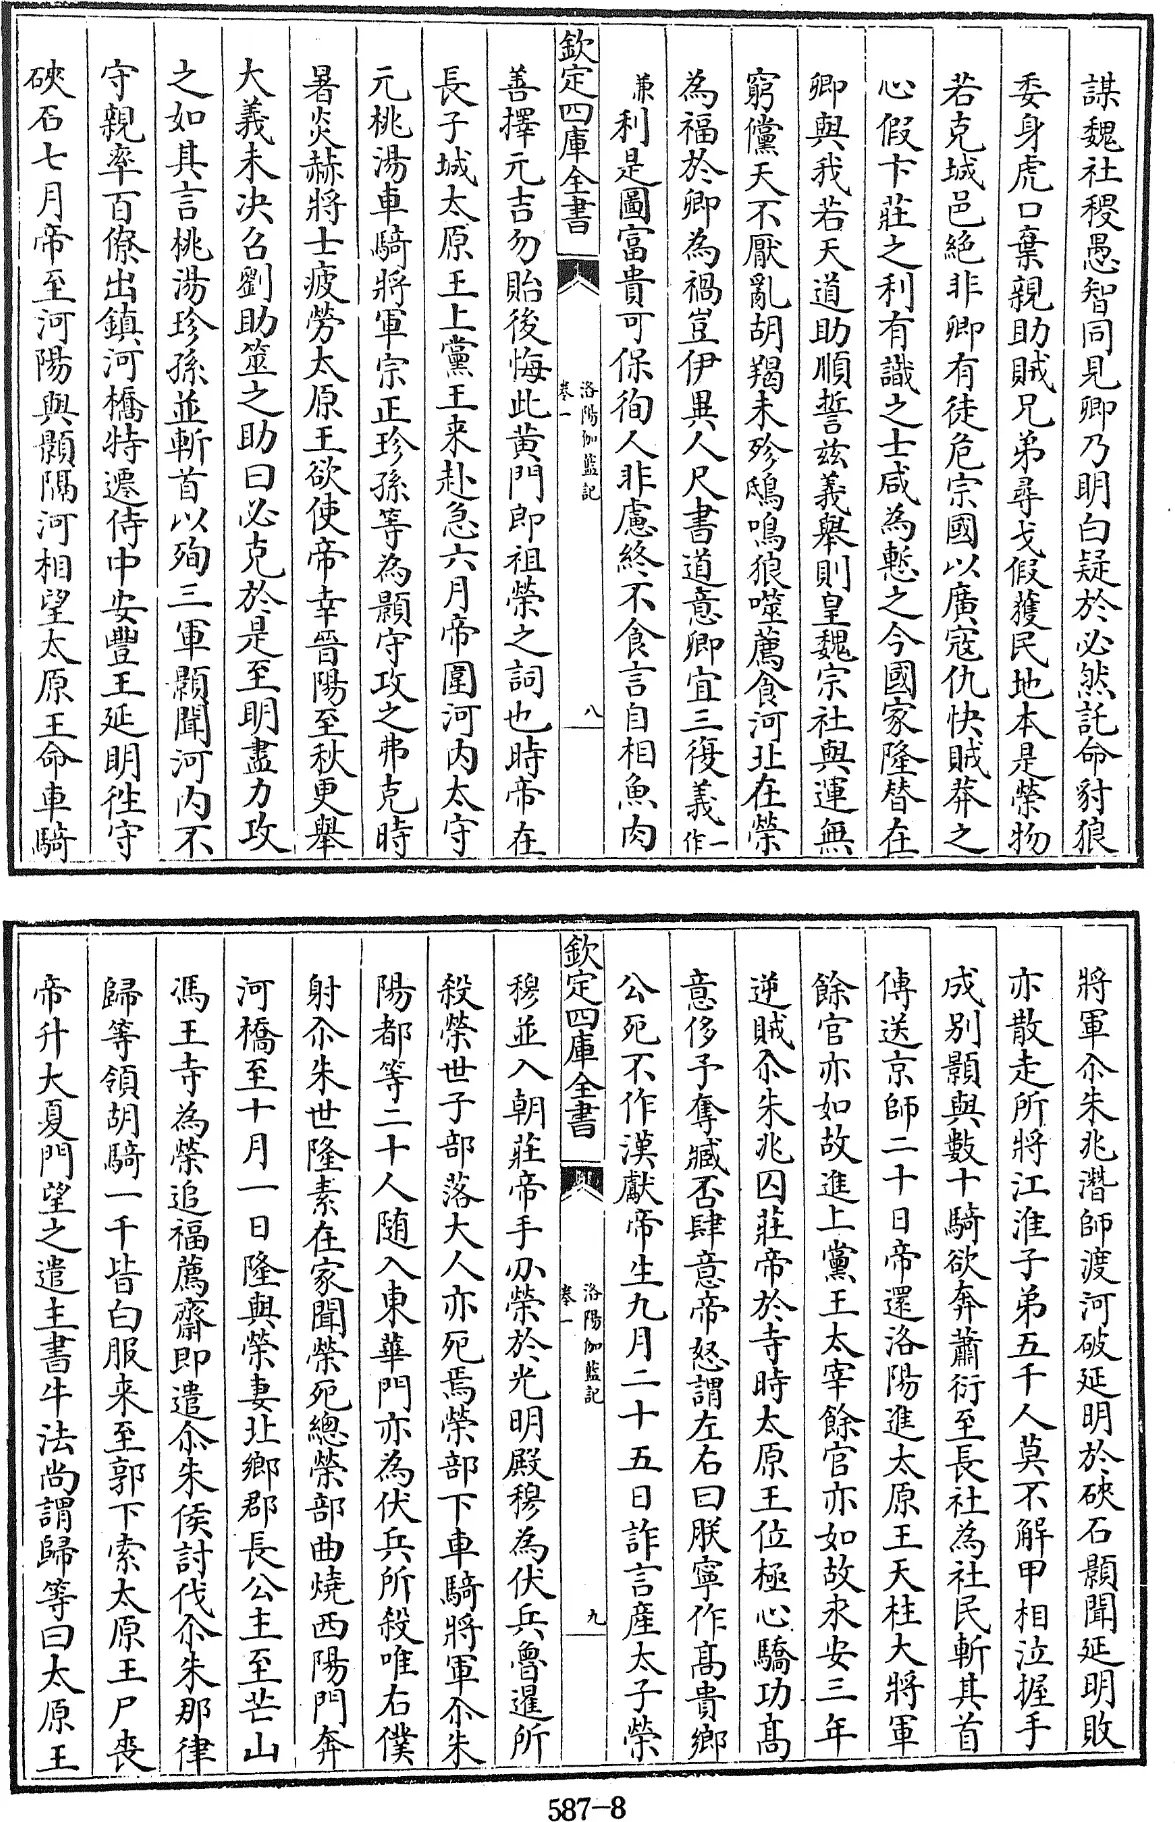 謀魏社稷愚智同見卿乃明白疑於必然託命豺狼
委身虎口棄親助賊兄弟尋戈假獲民地本是榮物
若克城邑絕非卿有徒危宗國以廣寇仇快賊莽之
心假卞莊之利有識之士咸為慙之今國家隆替在
卿與我若天道助順誓兹義舉則皇魏宗社與運無
窮儻天不厭亂胡羯未殄鴟鳴狼噬薦食河北在榮
為福於卿為禍豈伊異人尺書道意卿宜三復義一作
兼利是圖富貴可保徇人非慮終不食言自相魚肉
欽定四庫全書
洛陽伽藍記
卷一
八
善擇元吉勿貽後悔此黄門郎祖榮之詞也時帝在
長子城太原王上黨王来赴急六月帝圍河内太守
元桃湯車騎將軍宗正珍孫等為顥守攻之弗克時
暑炎赫將士疲勞太原王欲使帝幸晉陽至秋更舉
大義未决召劉助筮之助曰必克於是至明盡力攻
之如其言桃湯珍孫並斬首以殉三軍顥聞河内不
守親率百僚出鎮河橋特遷侍中安豐王延明徃守
硤石七月帝至河陽與顥隔河相望太原王命車騎
將軍尒朱兆潛師渡河破延明於硤石顥聞延明敗
亦散走所將江淮子弟五千人莫不解甲相泣握手
成别顥與數十騎欲奔蕭衍至長社為社民斬其首
傳送京師二十日帝還洛陽進太原王天柱大將軍
餘官亦如故進上黨王太宰餘官亦如故永安三年
逆賊尒朱兆囚莊帝於寺時太原王位極心驕功髙
意侈予奪臧否肆意帝怒謂左右曰朕寧作髙貴鄉
公死不作漢獻帝生九月二十五日詐言産太子榮
欽定四庫全書
洛陽伽藍記
卷一
九
穆並入朝莊帝手刃榮於光明殿穆為伏兵魯暹所
殺榮世子部落大人亦死焉榮部下車騎將軍尒朱
陽都等二十人随入東華門亦為伏兵所殺唯右僕
射尒朱世隆素在家聞榮死總榮部曲燒西陽門奔
河橋至十月一日隆與榮妻北鄉郡長公主至芒山
馮王寺為榮追福薦齋即遣尒朱侯討伐尒朱那律
歸等領胡騎一千皆白服来至郭下索太原王尸喪
帝升大夏門望之遣主書牛法尚謂歸等曰太原王
587-8